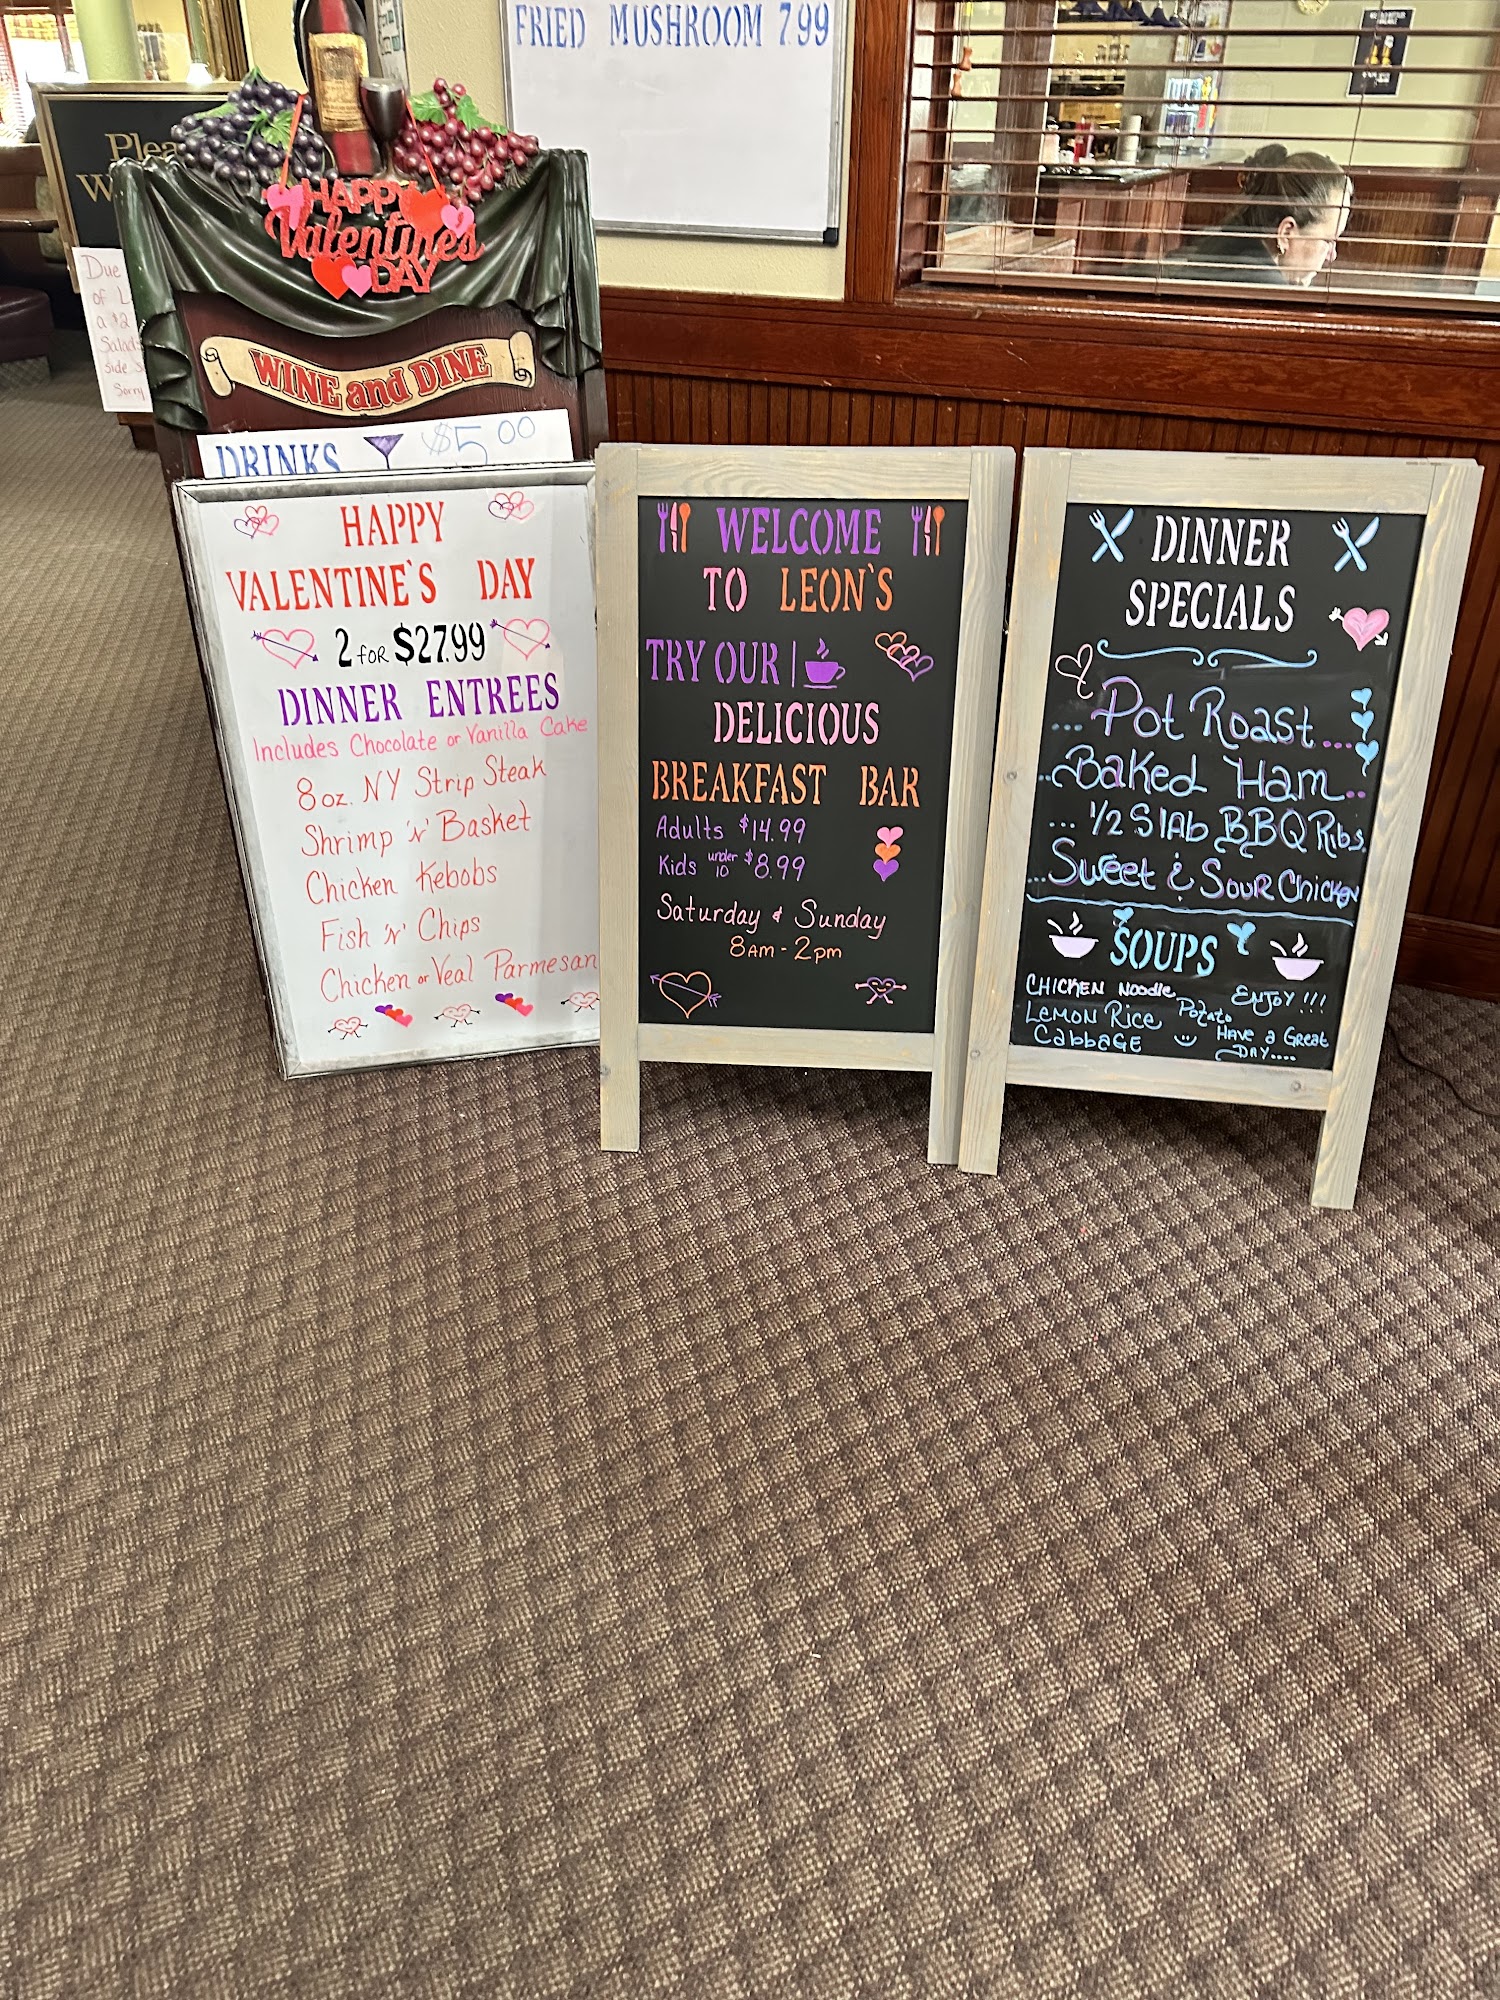 FRIED MUSHROOM 7.99
Due
of
a $2
Salad
side
Sorry
HAPPY
Valentines
DAY
WINE and DINE
DRINKS $5.00
HAPPY
VALENTINE'S DAY
2 FOR $27.99
DINNER ENTREES
Includes Chocolate or Vanilla Cake
8oz. NY Strip Steak
Shrimp 'n' Basket
Chicken Kebobs
Fish 'n' Chips
Chicken or Veal Parmesan
WELCOME
TO LEON'S
TRY OUR
DELICIOUS
BREAKFAST BAR
Adults $14.99
Kids under 10 $8.99
Saturday & Sunday
8AM - 2pm
DINNER
SPECIALS
... Pot Roast ....
... Baked Ham ...
... 1/2 Slab BBQ Ribs
... Sweet & Sour Chicken
SOUPS
CHICKEN NOODLE
LEMON RICE Potato
CABBAGE
ENJOY !!!
HAVE A GREAT
DAY....